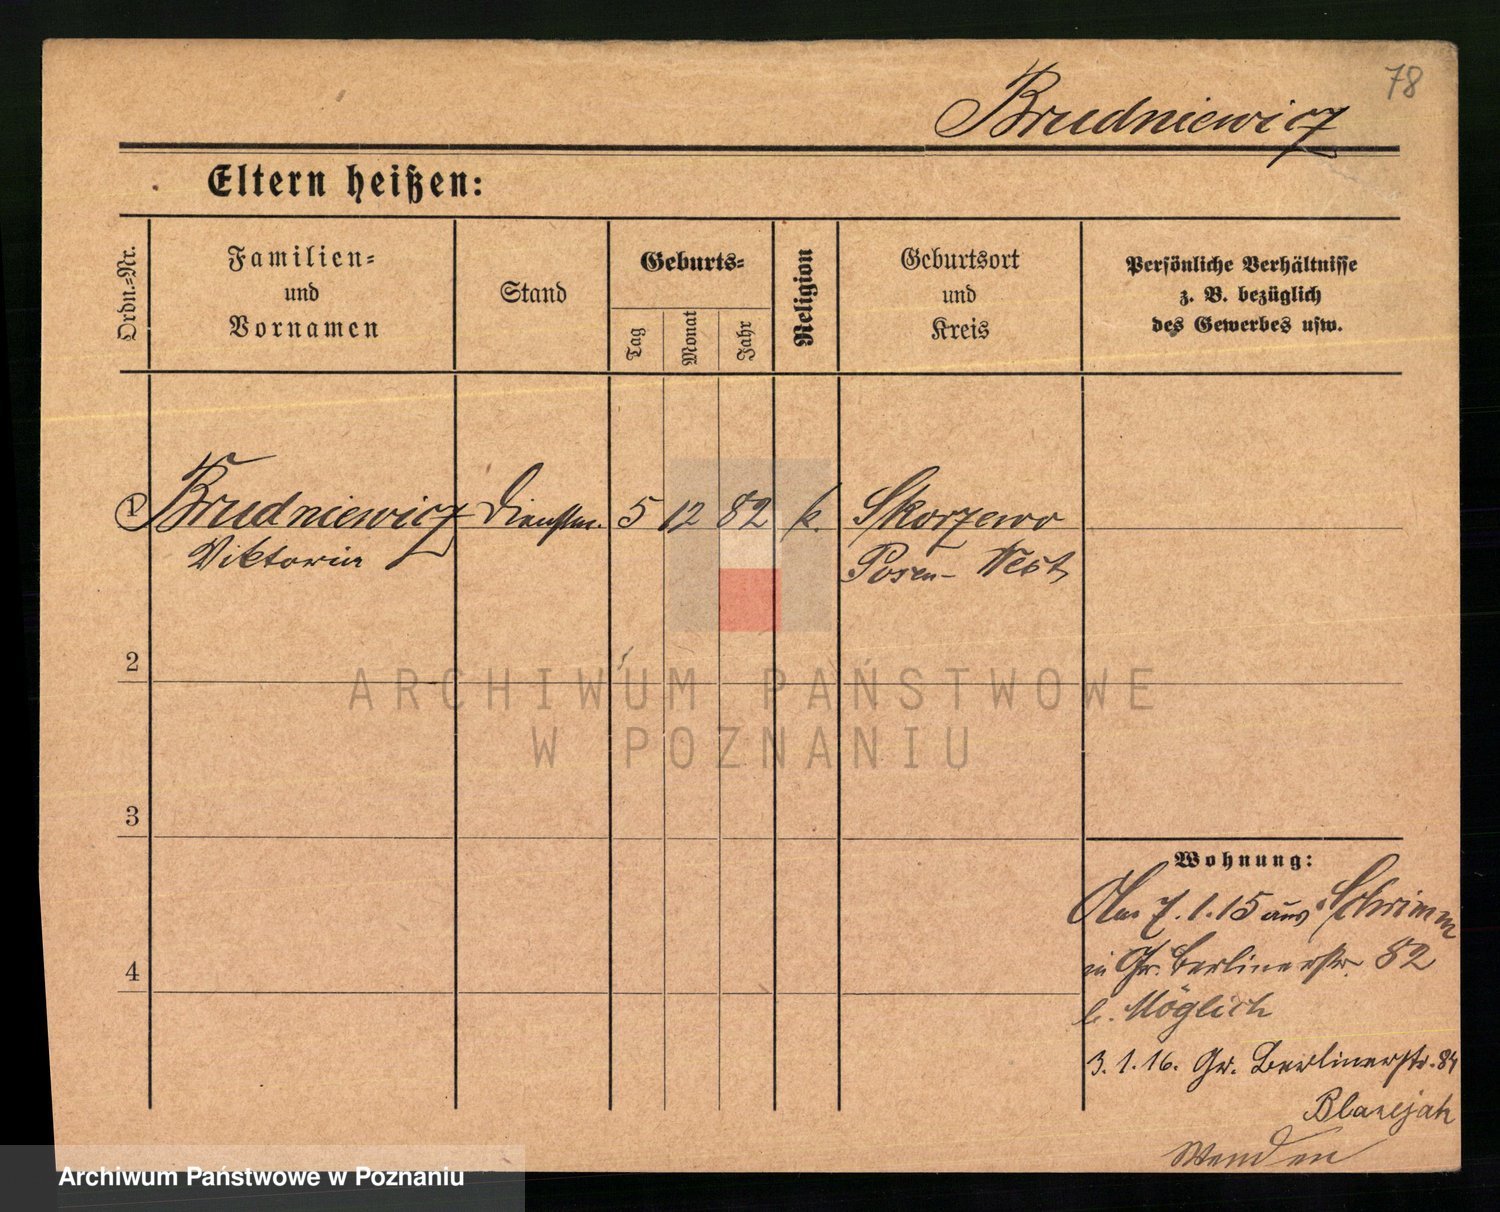 78
Brudniewicz
Eltern heißen:
Ordn.-Nr.
Familien-
und
Vornamen
Stand
Geburts-
Tag
Monat
Jahr
Religion
Geburtsort
und
Kreis
Persönliche Verhältnisse
z. B. bezüglich
des Gewerbes usw.
1 Brudniewicz Dienstm. 5 12 82 k. Skorzewo
Viktoria Posen-West
2
ARCHIWUM PAŃSTWOWE
W POZNANIU
3
Wohnung:
7.1.15 aus Schrimm
in Gr. Berlinerstr. 82
b. Möglich
4
3.1.16. Gr. Berlinerstr. 84
Blazejak
Wenden
Archiwum Państwowe w Poznaniu